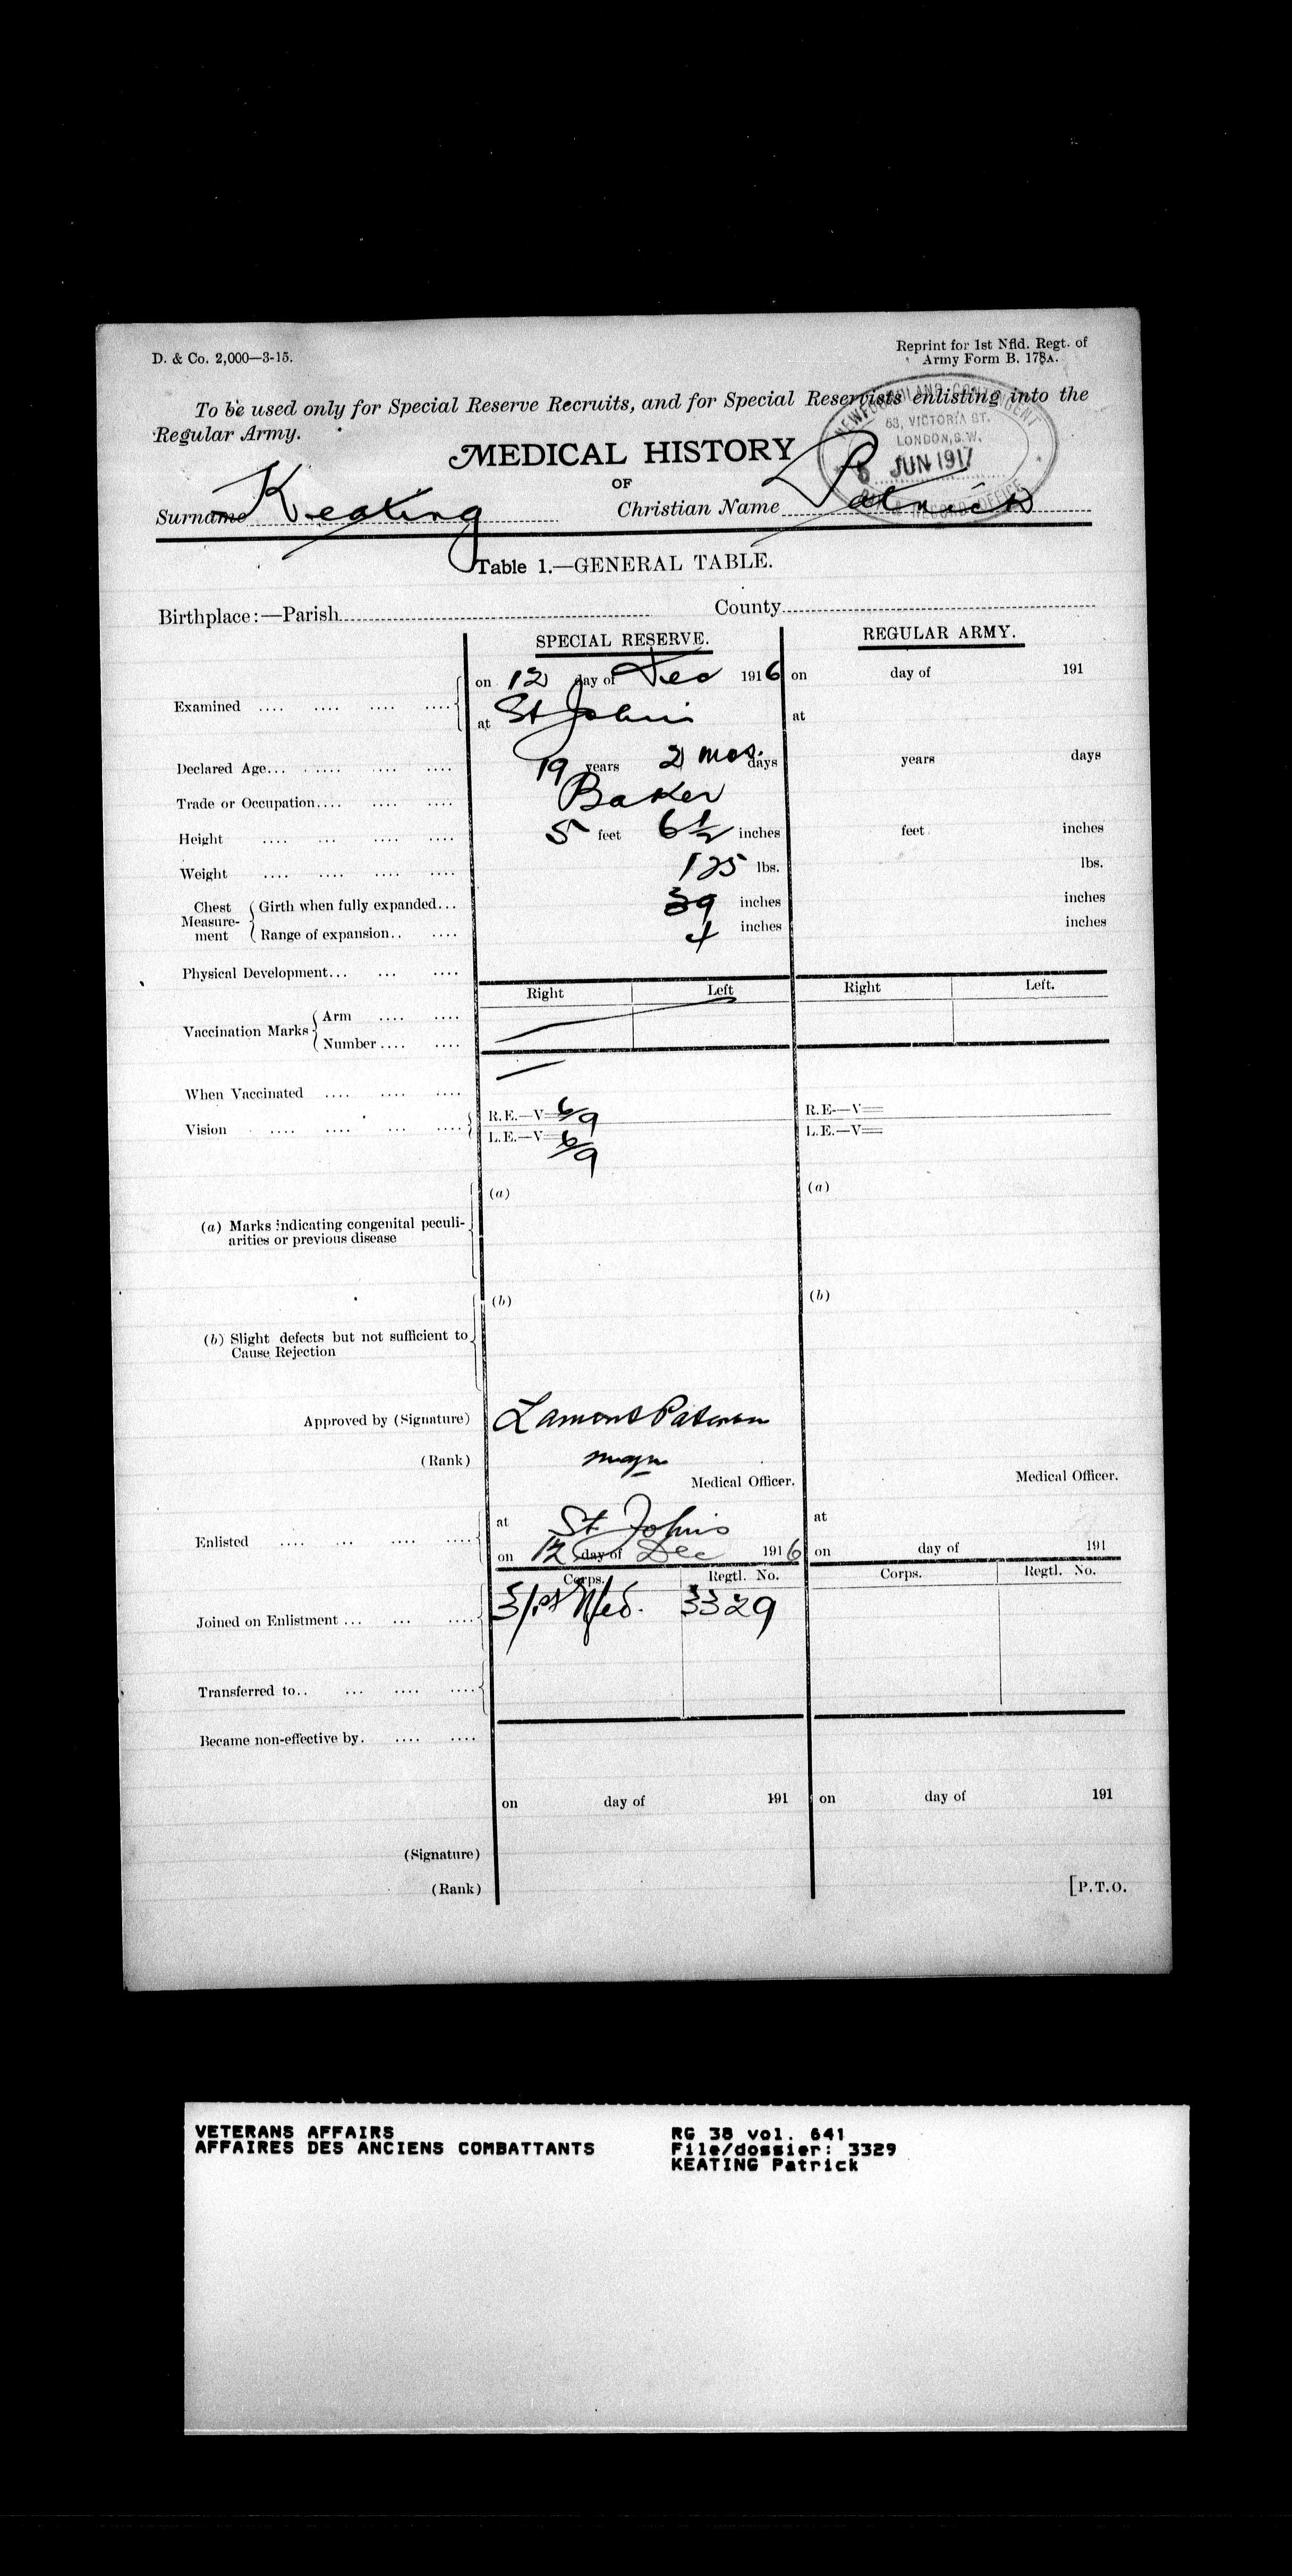 D. & Co. 2,000—3-15.
Reprint for 1st Nfld. Regt. of
Army Form B. 178A.
To be used only for Special Reserve Recruits, and for Special Reservists enlisting into the
Regular Army.
NEWFOUNDLAND CONTINGENT
63, VICTORIA ST.
LONDON, S.W.
JUN 1917
RECORD OFFICE
MEDICAL HISTORY
OF
Surname Keating Christian Name Patrick
Table 1.—GENERAL TABLE.
Birthplace:—Parish County
SPECIAL RESERVE. REGULAR ARMY.
Examined on 12 day of Dec 1916 on day of 191
at St Johns at
Declared Age 19 years 2 mos. days years days
Trade or Occupation Baker
Height 5 feet 6½ inches feet inches
Weight 125 lbs. lbs.
Chest Measure-ment Girth when fully expanded 39 inches inches
Range of expansion 4 inches inches
Physical Development
Right Left Right Left.
Vaccination Marks Arm
Number
When Vaccinated
Vision R.E.—V= 6/9 R.E.—V=
L.E.—V= 6/9 L.E.—V=
(a) (a)
(a) Marks indicating congenital peculi-
arities or previous disease
(b) (b)
(b) Slight defects but not sufficient to
Cause Rejection
Approved by (Signature) Lamont Paterson
(Rank) Major
Medical Officer. Medical Officer.
Enlisted at St Johns at
on 12 day of Dec 1916 on day of 191
Corps. Regtl. No. Corps. Regtl. No.
Joined on Enlistment 1st Nfld. 3329
Transferred to
Became non-effective by
on day of 191 on day of 191
(Signature)
(Rank)
[P.T.O.
VETERANS AFFAIRS RG 38 vol. 641
AFFAIRES DES ANCIENS COMBATTANTS File/dossier: 3329
KEATING Patrick